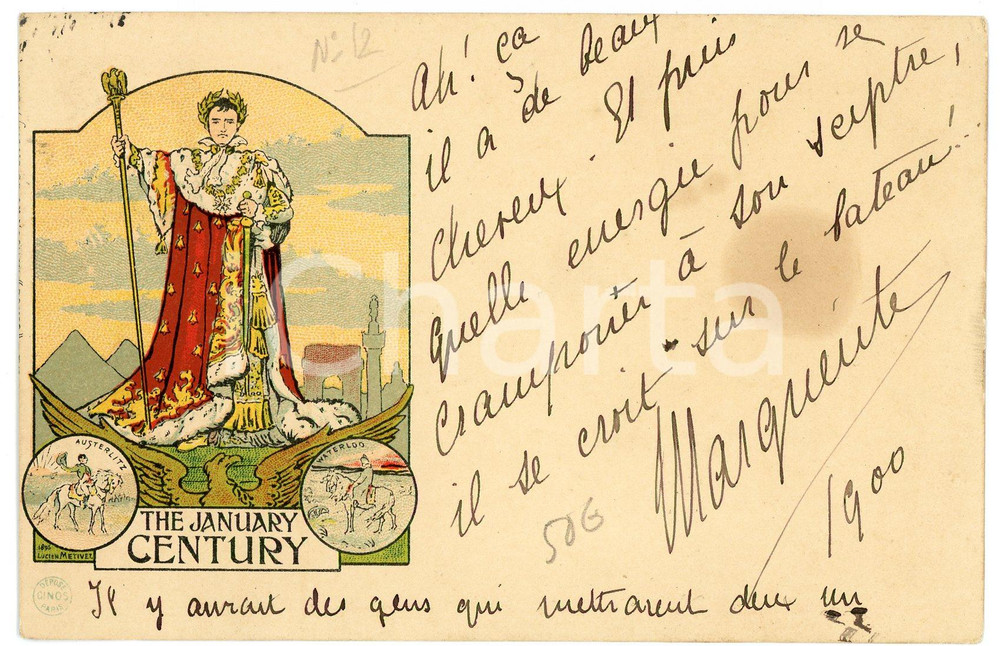 No 12
Ah! ça
il a de beaux
cheveux Et puis
Quelle energie pour se
cramponner à son sceptre,
il se croit sur le bateau!
Marguerite
1900
506
AUSTERLITZ
WATERLOO
THE JANUARY
CENTURY
1895
LUCIEN METIVET
DEPOSE
CINOS
PARIS
Il y aurait des gens qui mettraient deux un
Charta